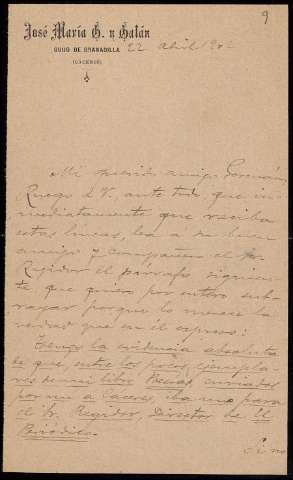 9
José María G. y Galán
GUIJO DE GRANADILLA
(CÁCERES)
22 Abril 902
Mi querido amigo Germán:
Ruego á V. ante todo que in-
mediatamente que reciba
estas líneas, lea a su buen
amigo y compañero el Sr.
Regidor el párrafo siguien-
te que quiero por entero sub-
rayar porque lo merece la
verdad que en él expreso:
Tengo la evidencia absoluta
de que, entre los pocos ejempla-
res de mi libro enviados
por mi a Cáceres, iba uno para
el Sr. Regidor, Director de El
Periódico.